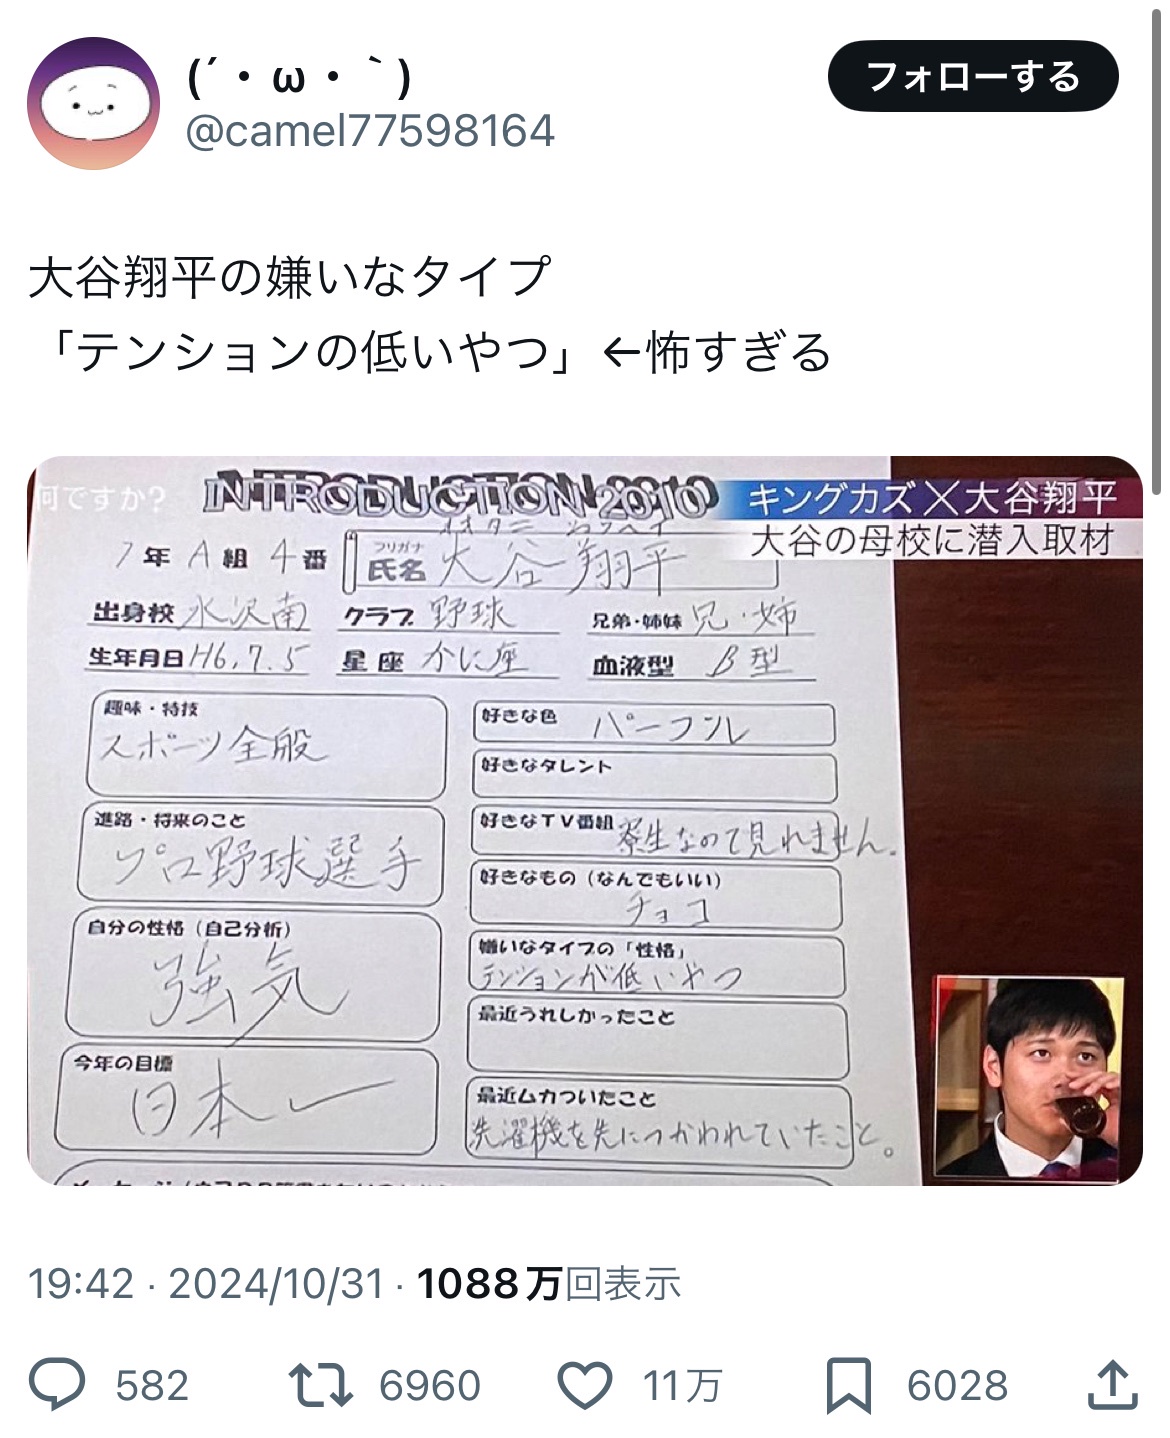 (´・ω・｀)
フォローする
@camel77598164
大谷翔平の嫌いなタイプ
「テンションの低いやつ」←怖すぎる
何ですか?
INTRODUCTION 2010
キングカズ×大谷翔平
大谷の母校に潜入取材
1年 A組 4番
フリガナ オオタニ ショウヘイ
氏名 大谷 翔平
出身校 水沢南 クラブ 野球 兄弟・姉妹 兄・姉
生年月日 H6.7.5 星座 かに座 血液型 B型
趣味・特技
スポーツ全般
進路・将来のこと
プロ野球選手
自分の性格(自己分析)
強気
今年の目標
日本一
好きな色 パープル
好きなタレント
好きなTV番組 寮生なので見れません.
好きなもの(なんでもいい)
チョコ
嫌いなタイプの「性格」
テンションが低いやつ
最近うれしかったこと
最近ムカついたこと
洗濯機を先につかわれていたこと。
19:42 · 2024/10/31 · 1088万回表示
582 6960 11万 6028